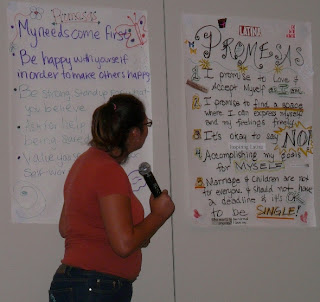 Promesas
My needs come first
Be happy with yourself
in order to make others happy
Be strong, stand up for what
you believe
Ask for
being
Value
Self-wor
LATINA
PROMESAS
1 I promise to Love &
Accept Myself as I am.
2 I promise to find a space
where I can express myself
and my feelings freely
3 It's okay to say NO!
4 Accomplishing my goals
for MYSELF.
5 Marriage & children are not
for everyone & should not have
a deadline & it's OK
to be SINGLE!